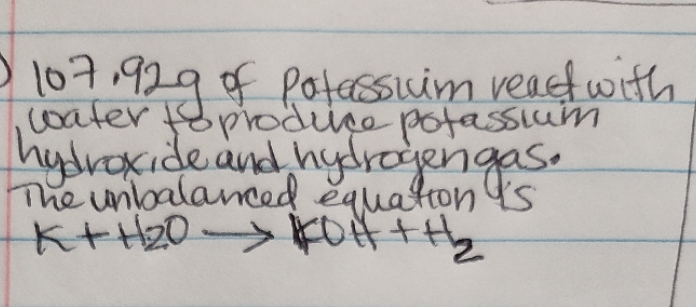 107.92g of Potassium react with
water to produce potassium
hydroxide and hydrogen gas.
The unbalanced equation is
K + H2O → KOH + H₂